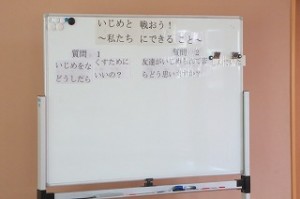 いじめと 戦おう！
～私たち にできる こと～
質問 1
いじめをな くすために
どうしたら いいの？
質問 2
友達がいじめ
らどう思いますか？